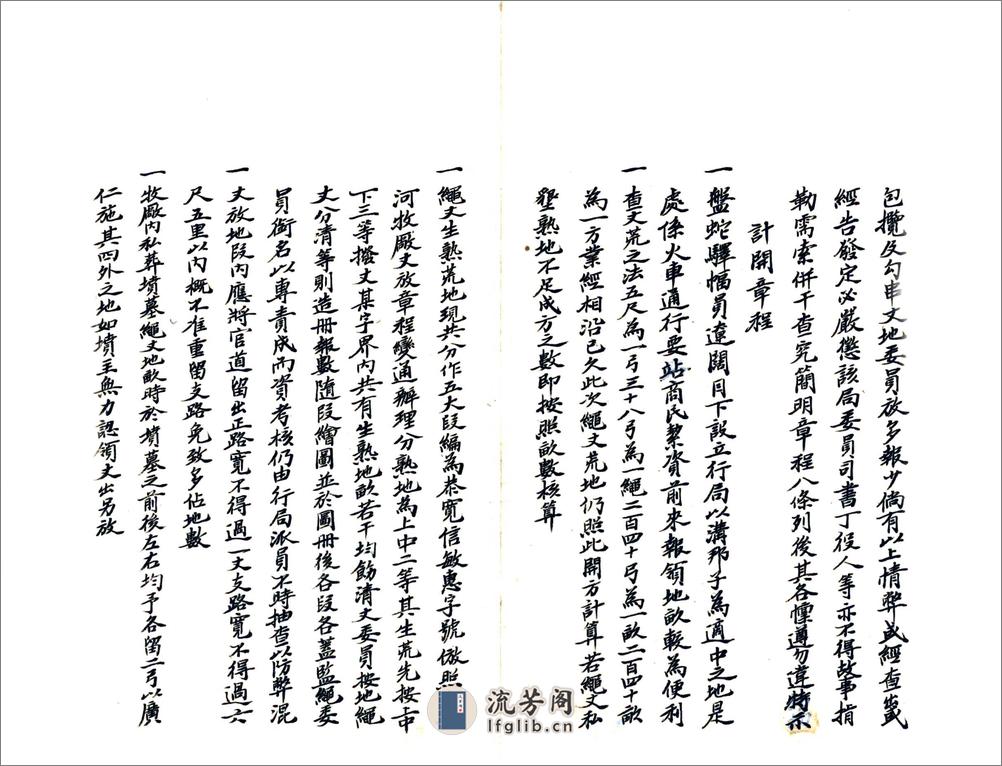 包攬及勾串丈地委員放多報少倘有以上情弊或經查出或
經告發定必嚴懲該局委員司書丁役人等亦不得故事指
勒需索併干查究簡明章程八條列後其各懍遵勿違特示
計開章程
一盤蛇驛幅員遼闊目下設立行局以溝邦子為適中之地是
處係火車通行要站商民絜資前來報領地畝較為便利
一查丈荒之法五尺為一弓三十八弓為一繩二百四十弓為一畝二百四十畝
為一方業經相沿已久此次繩丈荒地仍照此開方計算若繩丈私
墾熟地不足成方之數即按照畝數核算
一繩丈生熟荒地現共分作五大段編為恭寬信敏惠字號倣照
河牧廠丈放章程變通辦理分熟地為上中二等其生荒先按上中
下三等撥丈某字界內共有生熟地畝若干均飭清丈委員按地繩
丈分清等則造册報數隨段繪圖並於圖册後各段各蓋監繩委
員銜名以專責成而資考核仍由行局派員不時抽查以防弊混
一丈放地段內應將官道留出正路寬不得過一丈支路寬不得過六
尺五里以內概不准重留支路免致多佔地數
一牧廠內私葬墳墓繩丈地畝時於墳墓之前後左右均予各留二弓以廣
仁施其四外之地如墳主無力認領丈出另放
流芳阁
lfglib.cn